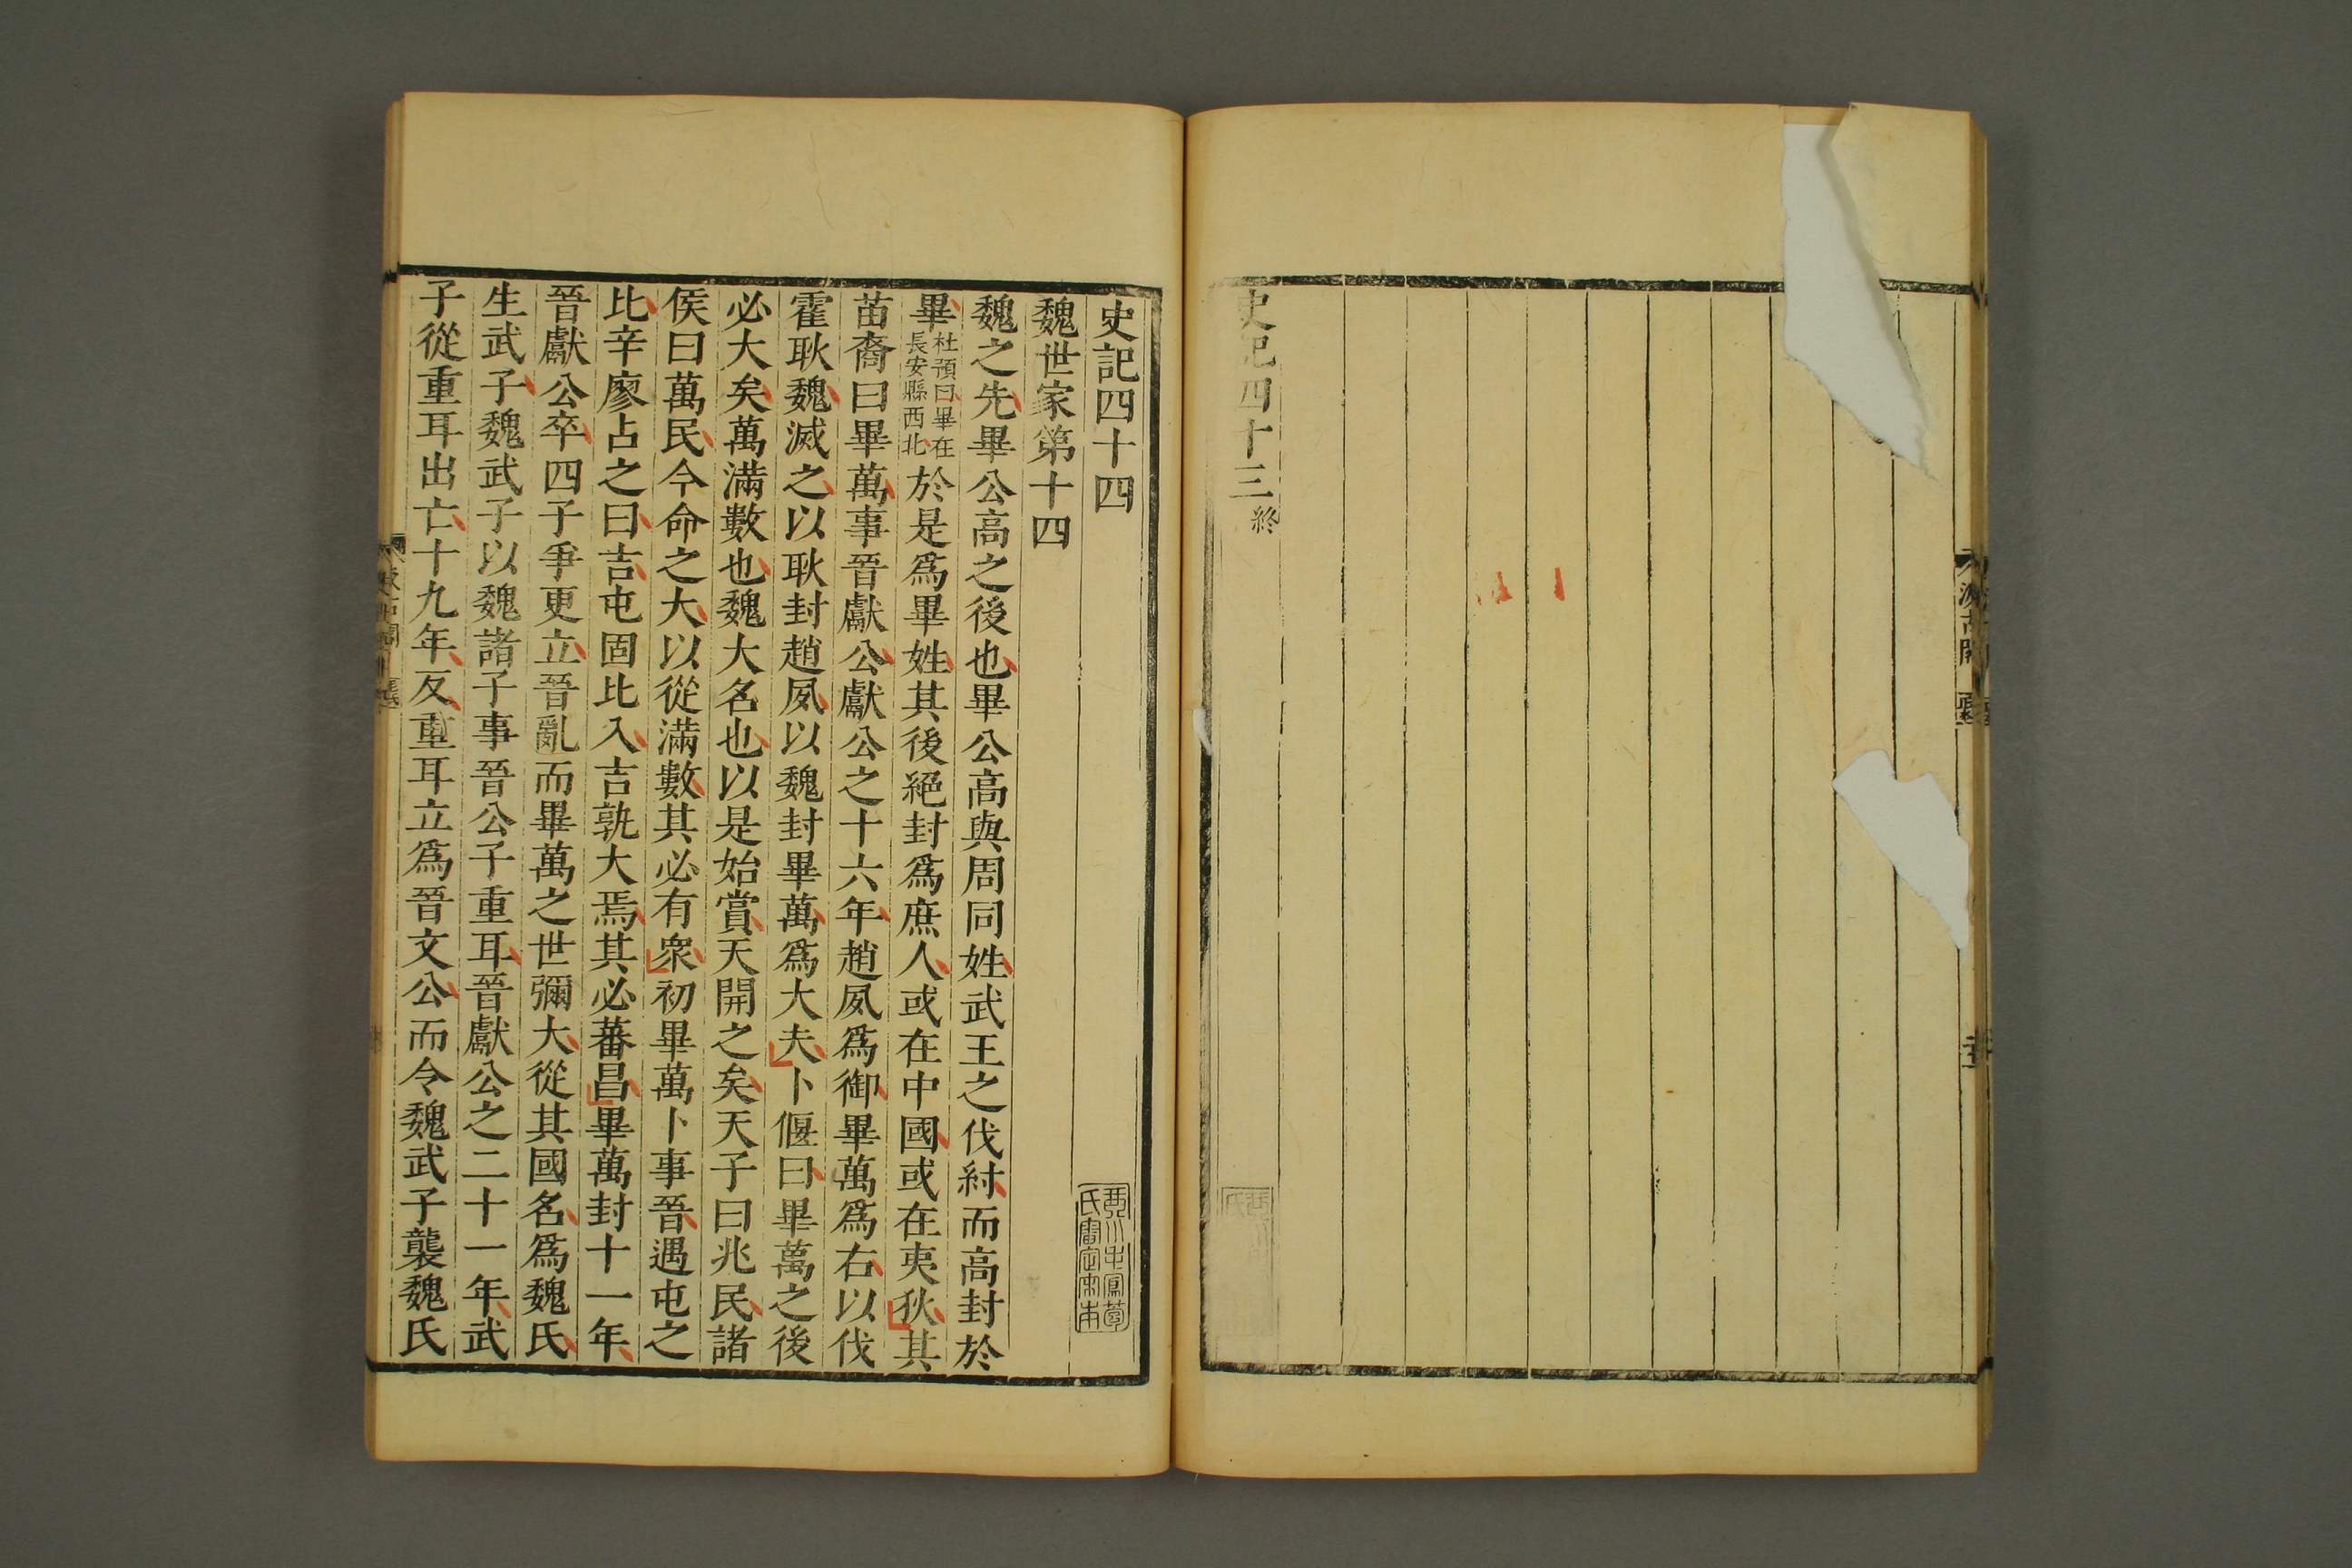 史記四十三終
史記四十四
魏世家第十四
魏之先畢公高之後也畢公高與周同姓武王之伐紂而高封於
畢杜預曰畢在長安縣西北於是爲畢姓其後絕封爲庶人或在中國或在夷狄其
苗裔曰畢萬事晉獻公獻公之十六年趙夙爲御畢萬爲右以伐
霍耿魏滅之以耿封趙夙以魏封畢萬爲大夫卜偃曰畢萬之後
必大矣萬滿數也魏大名也以是始賞天開之矣天子曰兆民諸
侯曰萬民今命之大以從滿數其必有衆初畢萬卜事晉遇屯之
比辛廖占之曰吉屯固比入吉孰大焉其必蕃昌畢萬封十一年
晉獻公卒四子爭更立晉亂而畢萬之世彌大從其國名爲魏氏
生武子魏武子以魏諸子事晉公子重耳晉獻公之二十一年武
子從重耳出亡十九年反重耳立爲晉文公而令魏武子襲魏氏